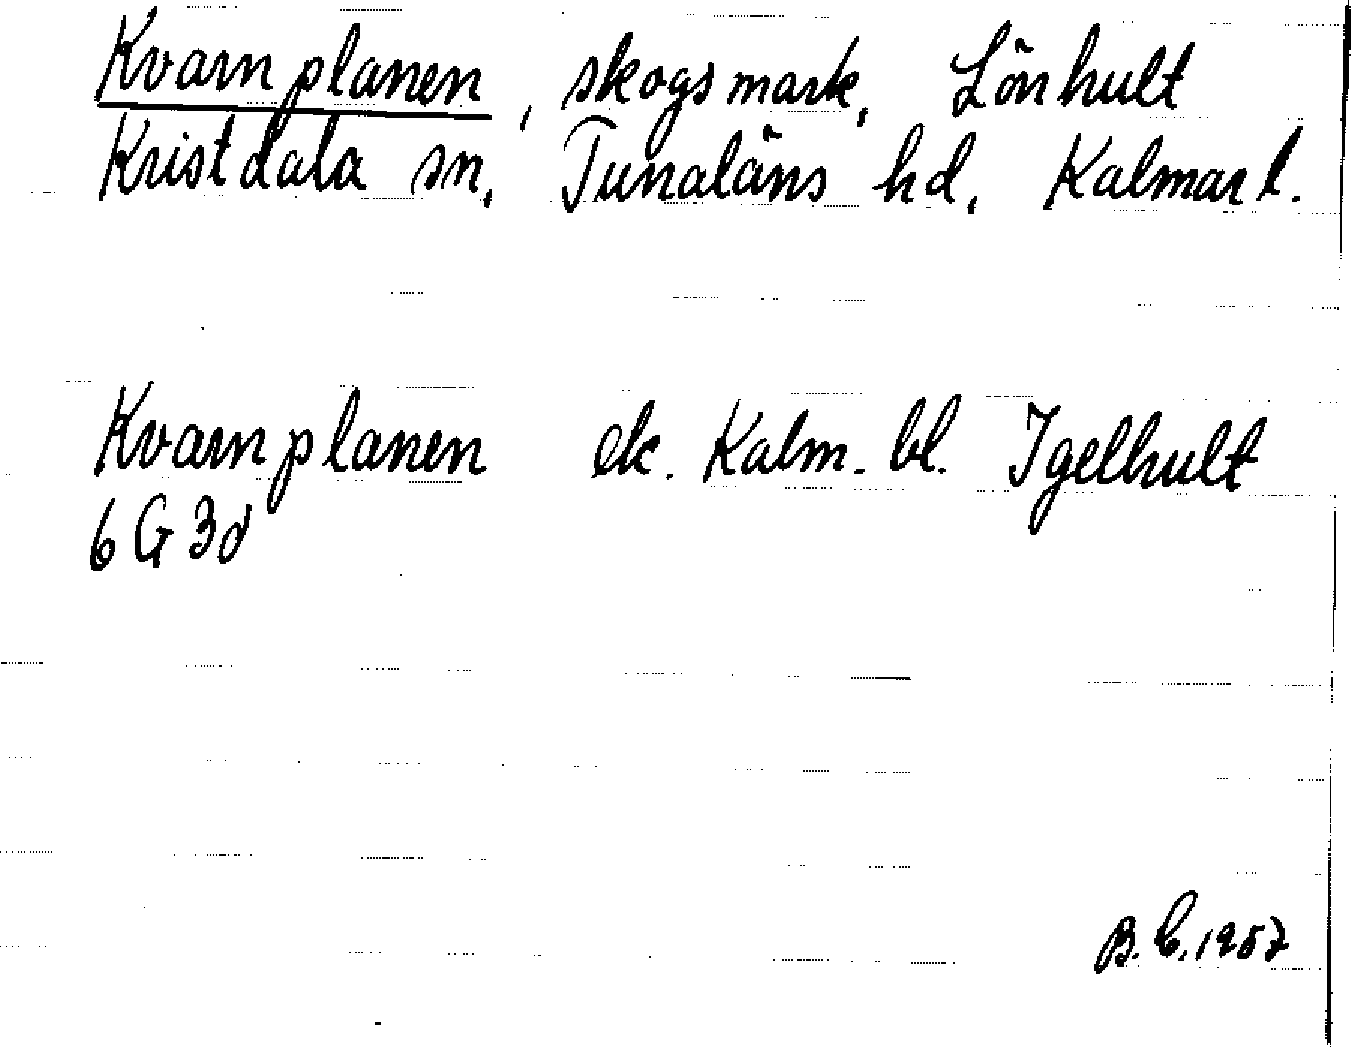 Kvarnplanen, skogsmark, Lönhult
Kristdala sn, Tunaläns hd, Kalmar l.
Kvarnplanen ek. Kalm. bl. Igelhult
6G3d
B.C.